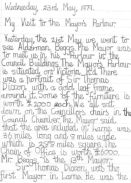 Wednesday, 23rd May, 1979.
My Visit to the Mayor's Parlour
Yesterday, the 21st May, we went to
see Alderman Beggs. The Mayor was
to meet us in his Parlour in the
Council Buildings. The Mayor's Parlour
is situated on Victoria Rd. There
was a portrait of Sir Thomas
Dixon, with a gold leaf frame
around it. Some of the furniture is
worth £2000 each. We all sat
down in the Councillors chairs in the
Council Chamber. The Mayor said
that the area outside of Larne was
36 miles long and 9 miles wide
which is 257½ miles square. The
Chain of Office is worth £10000.
Mr Beggs is the 13th Mayor.
Sir Thomas Dixon was the
first Mayor in Larne. He was the